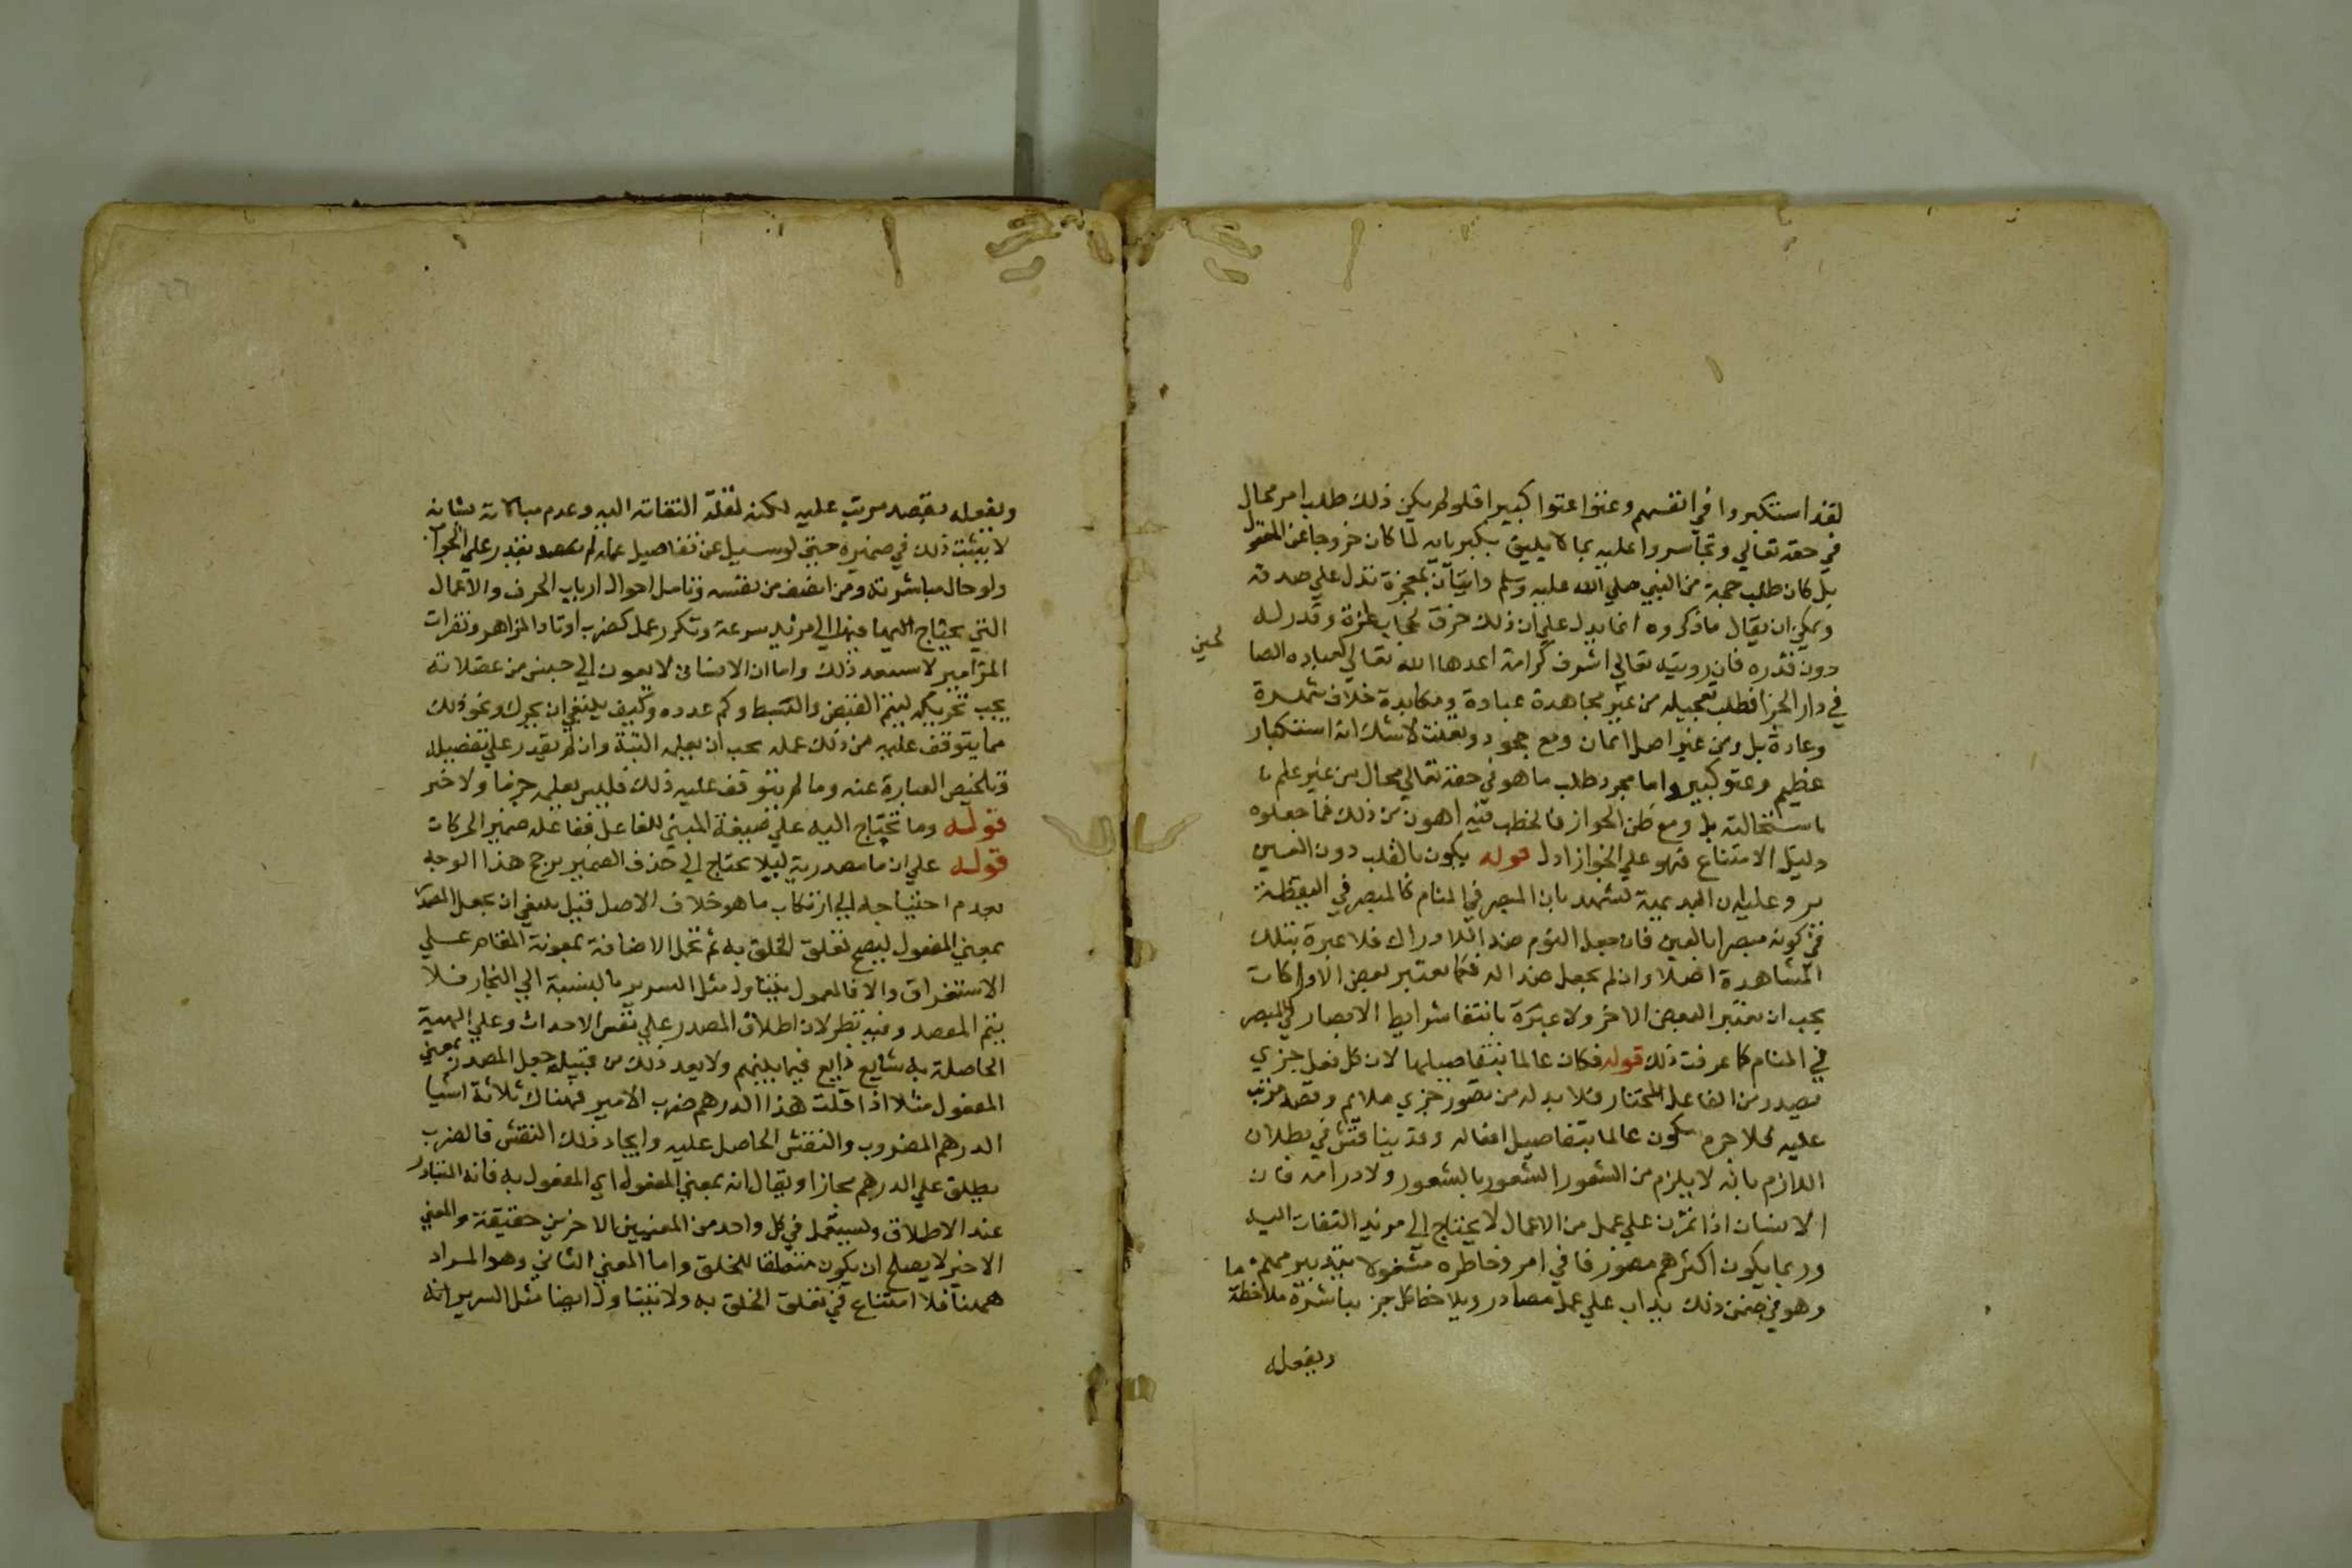 لقد استكبروا في انفسهم وعتوا عتوا كبيرا فلو لم يكن ذلك طلب امر محال
في حقه تعالي وتجاسروا عليه بما لا يليق بكبريايه لما كان خروجا عن المعقول
بل كان طلب حجة من النبي صلي الله عليه وسلم واتيان بمعجزة تدل علي صدقه
ويمكن ان يقال ما ذكروه انما يدل علي ان ذلك خرق لحجاب العزة وقدر له
دون قدره فان رويته تعالي اشرف كرامة اعدها الله تعالي لعباده الصا
لحين
في دار الجزا فطلب تعجيله من غير مجاهدة عبادة ومكابدة خلاف شهوة
وعادة بل ومن غير اصل ايمان ومع جحود وتعنت لا شك انه استكبار
عظيم وعتو كبير واما مجرد طلب ما هو في حقه تعالي محال من غير علم
باستحالته بل ومع ظن الجواز فالخطب فيه اهون من ذلك فما جعلوه
دليل الامتناع فهو علي الجواز ادل قوله يكون بالقلب دون العين
يرد عليه ان البديهية تشهد بان المبصر في المنام كالمبصر في اليقظة
في كونه مبصرا بالعين فان جعل النوم ضدا للادراك فلا عبرة بتلك
المشاهدة اصلا وان لم يجعل ضدا له فكما يعتبر بعض الادراكات
يجب ان يعتبر البعض الاخر ولا عبرة بانتفا شرايط الابصار في المبصر
في المنام كما عرفت ذلك قوله فكان عالما بتفاصيلها لان كل فعل جزي
يصدر من الفاعل المختار فلا بد له من تصور جزي ملايم وقصد مرتب
عليه فلا جرم يكون عالما بتفاصيل افعاله وقد يناقش في بطلان
اللازم بانه لا يلزم من الشعور الشعور بالشعور ولا دوامه فان
الانسان اذا تمرن علي عمل من الاعمال لا يحتاج الي مزيد التفات اليه
وربما يكون اكثرهم مصروفا في امر وخاطره مشغولا بتدبير مهم ما
وهو في ضمن ذلك يداب علي عمل مصادر ويلاحظ كل جز يباشره ملاحظة
ويفعله
ويفعله بقصد مرتب عليه لكنه لقلة التفاته اليه وعدم مبالاته بشانه
لا يثبت ذلك في ضميره حتي لو سيل عن تفاصيل عمله لم يقدر علي الجواب
ولو حال مباشرته ومن انصف من نفسه وتامل احوال ارباب الحرف والاعمال
التي يحتاج اليها فيها الي مزيد سرعة وتكرر عمل كضرب اوتاد المزاهر ونقرات
المزامير لا يستبعد ذلك واما ان الانسان لا يعرف الي حين من عضلاته
يجب تحريكه ليتم القبض والبسط وكم عدده وكيف ينبغي ان يحرك ونحو ذلك
مما يتوقف عليه من ذلك عمله يجب ان يعلمه البتة وان لم يقدر علي تفصيله
وتلخيص العبارة عنه وما لم يتوقف عليه ذلك فليس يعلمه جزما ولا ضير
قوله وما تحتاج اليه علي صيغة المبني للفاعل ففاعله ضمير الحركات
قوله علي ان ما مصدرية ليلا يحتاج الي حذف الضمير يرجح هذا الوجه
بعدم احتياجه الي ارتكاب ما هو خلاف الاصل قيل ينبغي ان يجعل المصدر
بمعني المفعول ليصح تعلق الخلق به ثم تحمل الاضافة بمعونة المقام علي
الاستغراق والا فالمعمول يتناول مثل السرير بالنسبة الي النجار فلا
يتم المقصد وفيه نظر لان اطلاق المصدر علي نفس الاحداث وعلي الهيية
الحاصلة به شايع ذايع فيما بينهم ولا يعد ذلك من قبيل جعل المصدر بمعني
المفعول مثلا اذا قلت هذا الدرهم ضرب الامير فهناك ثلاثة اشيا
الدرهم المضروب والنقش الحاصل عليه وايجاد ذلك النقش فالضرب
يطلق علي الدرهم مجازا ويقال انه بمعني المفعول اي المفعول به فانه المتبادر
عند الاطلاق ويستعمل في كل واحد من المعنيين الاخرين حقيقة والمعني
الاخير لا يصلح ان يكون متعلقا للخلق واما المعني الثاني وهو المراد
ههنا فلا امتناع في تعلق الخلق به ولا يتناول ايضا مثل السرير انه